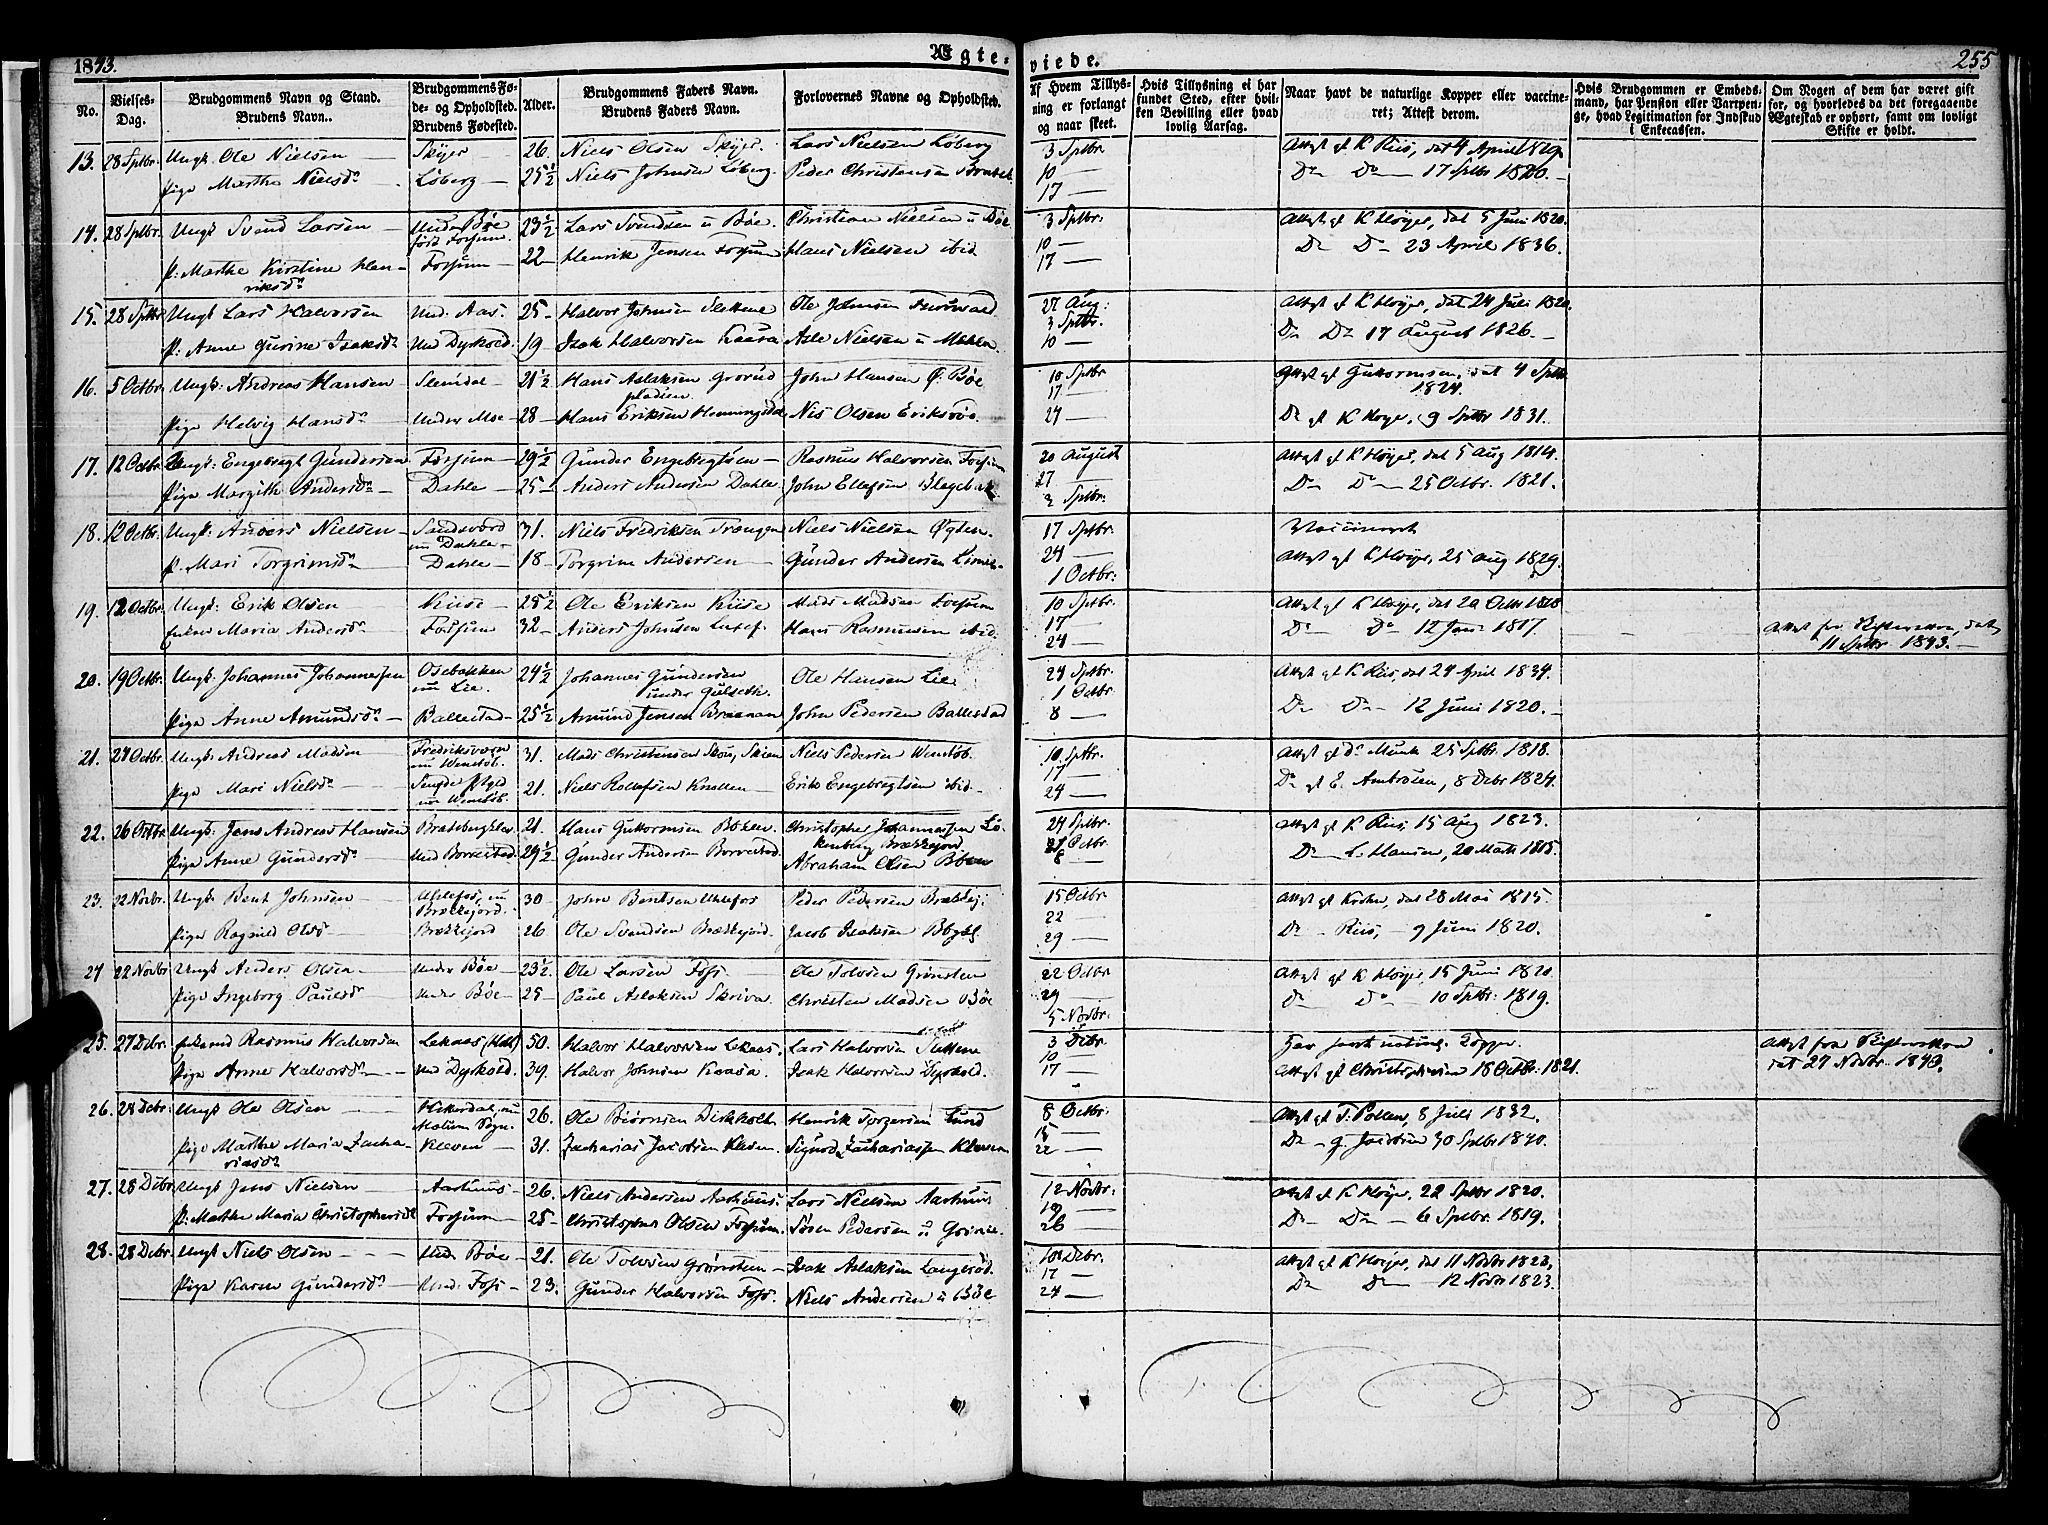 1843.
Ægte-
viede.
255
No.
Vielses-
Dag.
Brudgommens Navn og Stand.
Brudens Navn.
Brudgommens Fø-
de- og Opholdsted.
Brudens Fødested.
Alder.
Brudgommens Faders Navn.
Brudens Faders Navn.
Forlovernes Navne og Opholdsted.
Af Hvem Tillys-
ning er forlangt
og naar skeet.
Hvis Tillysning ei har
fundet Sted, efter hvil-
ken Bevilling eller hvad
lovlig Aarsag.
Naar havt de naturlige Kopper eller vaccine-
ret; Attest derom.
Hvis Brudgommen er Embeds-
mand, har Pension eller Vartpen-
ge, hvad Legitimation for Indskud
i Enkecassen.
Om Nogen af dem har været gift
før, og hvorledes da det foregaaende
Ægteskab er ophørt, samt om lovligt
Skifte er holdt.
13. 28 Sptbr. Ungk. Ole Nielsen Skyer 26. Niels Olsen Skyer. Lars Nielsen Løberg 3 Sptbr. Attest af K Riis, dat 4 April 1819.
Pige Marthe Nielsd. Løberg 25½ Niels Johnsen Løberg. Peder Christensen 10 — Do Do 17 Sptbr 1820.
17 —
14. 28 Sptbr. Ungk. Svend Larsen Under Bøe 23½ Lars Svendsen u Bøe. Christian Nielsen u Bøe 3 Sptbr. Attest af K Høyer, dat 5 Juni 1820.
født Fossum. 10 — Do Do 23 April 1836.
P: Marthe Kirstine Hen- Fossum 22 Henrik Jensen Fossum Hans Nielsen ibid 17 —
riksdr
15. 28 Sptbr Ungk Lars Halvorsen Und. Aas. 25 Halvor Johnsen Slettene Ole Johnsen 27 Aug: Attest af K Høyer, dat 24 Juli 1820.
3 Sptbr. Do Do 17 August 1826.
P: Anne Gurine Isaksdr Und Dyrkold. 19 Isak Halvorsen Kaasa Asle Nielsen u Mæhla. 10 —
16. 5 Octbr. Ungk: Andreas Hansen Slemdal 21½ Hans Aslaksen Grorud John Hansen Ø: Bøe 10 Sptbr Attest af Guttormsen, dat 4 Sptbr
pladsen. 17 — 1824.
Pige Helvig Hansdr Under Moe 28 Hans Eriksen Nis Olsen Eriksrøe. 24 — Do af K Høyer, 9 Sptbr 1831.
17. 12 Octbr. Ungk: Engebregt Gundersen Fossum 29½ Gunder Engebregtsen Rasmus Halvorsen Fossum 20 August Attest af K Høyer, dat 5 Aug 1814.
Pige Margith Andersdr Dahle 25 Anders Andersen Dahle. John Ellefsen 27 — Do Do 25 Octbr. 1821.
3 Sptbr:
18. 12 Octbr. Ungk: Anders Nielsen Sandsværd 31. Niels Fredriksen Trangen Niels Nielsen Øgden. 17 Sptbr Vaccineret
nu Dahle
P. Mari Torgrimsdr Dahle 18 Torgrim Andersen Gunder Andersen 24 — Attest af K Høyer, 25 Aug 1829.
1 Octbr:
19. 12 Octbr. Ungk: Erik Olsen Kiise 25½ Ole Eriksen Kiise Mads Madsen Fossum 10 Sptbr. Attest af K Høyer, dat 20 Octbr 1818
Enke Maria Andersdr Fossum 32 Anders Johnsen Hans Rasmussen ibid. 17 — Do Do 12 Jan 1817. Attest fra Skifteretten, dat
24 — 11 Sptbr 1843.
20. 19 Octbr. Ungk: Johannes Johannesen Osebakken 24½ Johannes Gundersen Ole Hansen Lie 24 Sptbr. Attest af K Riis, dat 24 April 1834.
nu Lie. under Gulseth. 1 Octbr
Pige Anne Amundsdr Ballestad 25½ Amund Jensen John Pedersen Ballestad 8 — Do Do 12 Juni 1820.
21. 24 Octbr. Ungk: Andreas Madsen Fredriksværn 31. Mads Christensen Skou, Skien Niels Pedersen Wenstøb. 10 Sptbr. Attest af Dr Munk 25 Sptbr. 1818.
nu Wenstøb. 17 —
Pige Mari Nielsdr 21. Niels Rollefsen Erik Engebregtsen ibid 24 — Do af E. Ambrosen, 8 Debr 1824.
nu Wenstøb.
22. 26 Octbr Ungk: Jens Andreas Hansen Bratsbergkles 21. Hans Guttormsen Christopher Johannesen 24 Sptbr. Attest af K Riis, 15 Aug 1823.
Brækkejord Octbr.
Pige Anne Gundersdr Und Borrestad 29½ Gunder Andersen Borrestad Abraham Olsen 8 — Do L. Hansen, 20 Marts 1815.
23. 22 Novbr. Ungk: Bent Johnsen Ulefos, nu 30 John Bentsen Ulefos Peder Pedersen Brækkej: 15 Octbr Attest af Krohn, dat 28 Mai 1815.
Brækkejord. 22 —
Pige Ragnild Olsdr Brækkejord 26 Ole Svendsen Brækkejord. Jacob Isaksen 29 — Do Riis, 9 Juni 1820.
24 22 Novbr Ungk Anders Olsen Under Bøe 23½ Ole Larsen Foss Ole Tolvsen Grønsten 22 Octbr Attest af K Høyer, 15 Juni 1820.
Pige Ingeborg Paulsdr Under Bøe 25 Paul Aslaksen Skriva. Christen Madsen Bøe 29 — Do Do 10 Sptbr: 1819.
5 Novbr:
25. 27 Debr. Enkemd Rasmus Halvorsen Lekaas 50. Halvor Halvorsen Lekaas. Lars Halvorsen Slettene 3 Debr. Har havt naturl. Kopper. Attest fra Skifteretten
10 —
Pige Anne Halvorsdr Und Dyrkold. 39. Halvor Johnsen Kaasa. Isak Halvorsen Dyrkold. 17 — Attest af Christophersen 18 Octbr. 1821. dat 27 Novbr 1843.
26. 28 Debr. Ungk Ole Olsen Hitterdal, nu 26. Ole Biørnsen Henrik Torgersen Lund 8 Octbr: Attest af T. Pollen, 8 Juli 1832.
Melum Sogn. 15 —
Pige Marthe Maria Zacha- Kleven 31. Zacharias Jacobsen Kleven. Sigurd Zachariassen Kleven 22 — Do g. Jacobsen 30 Sptbr 1820.
riasdr
27. 28 Debr Ungk Jens Nielsen Aarhuus 26. Niels Andersen Aarhuus. Lars Nielsen Aarhuus 12 Novbr: Attest af K Høyer, 22 Sptbr 1820.
P: Marthe Maria Christophersdr Fossum 25 Christopher Olsen Fossum. Søren Pedersen u 19 — Do Do 6 Sptbr. 1819.
26 —
28. 28 Debr. Ungk Niels Olsen Und. Bøe 21. Ole Tolvsen Grønsten Isak Aslaksen Langerød. 10 Debr. Attest af K Høyer, dat 11 Novbr 1823,
17 —
Pige Karen Gundersdr Und. Foss 23. Gunder Halvorsen Foss. Niels Andersen u Bøe 24 — Do Do 12 Novbr 1823.